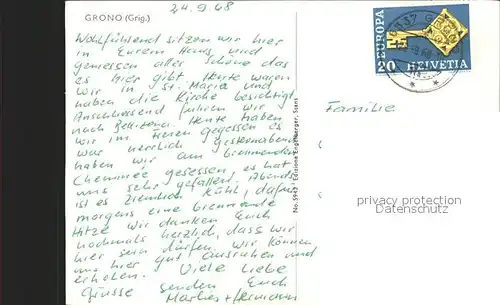 24.9.68
GRONO (Grig.)
Wohlfühlend sitzen wir hier
in Eurem Haus und
geniessen aller Schöne das
es hier gibt. Heute waren
wir in St. Maria und
haben die Kirche besichtigt.
Anschliessend fuhren wir
nach Bellinzona. Heute haben
wir im Freien gegessen es
war herrlich. Gesternabend
haben wir am brennenden
Cheminée gesessen, es hat
uns sehr gefallen. Abends
ist es ziemlich kühl, dafür
morgens eine brennende
Hitze. Wir danken Euch
nochmals herzlich, dass wir
hier sein dürfen. Wir können
uns hier gut ausruhen und
erholen.
Viele liebe
Grüsse senden Euch
Marlies + Hermann
No. 5942 Edizione Engelberger, Stans
EUROPA
20 HELVETIA
6537 GRONO
Familie
privacy protection
Datenschutz